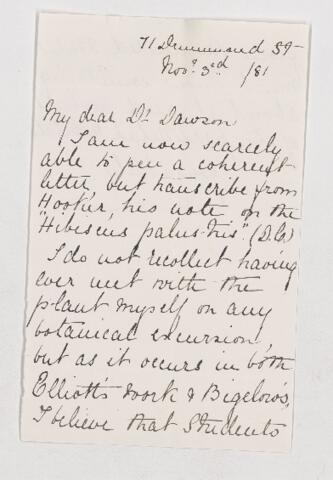 71 Drummond St
Nov. 3rd /81
My dear Dr Dawson
I am now scarcely
able to pen a coherent
letter, but transcribe from
Hooker, his note on the
"Hibiscus palustris"
I do not recollect having
ever met with the
plant myself on any
botanical excursion,
but as it occurs in both
Elliott's work & Bigelow's,
I believe that Students